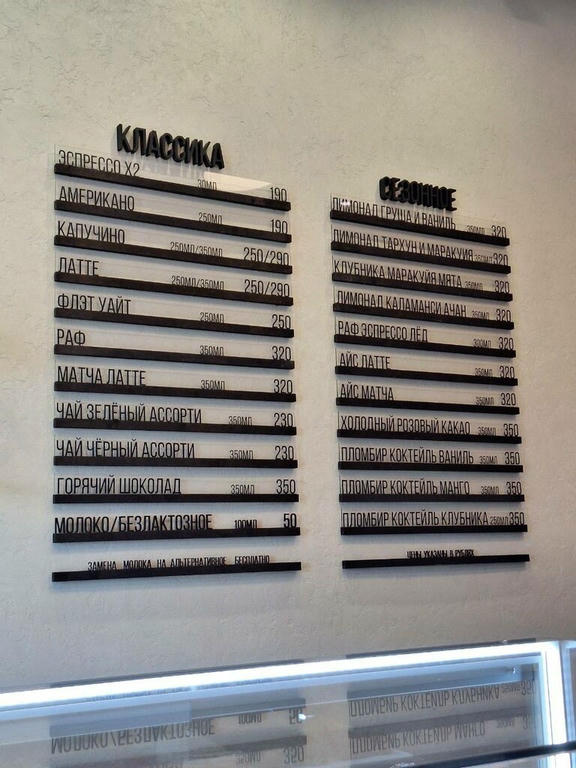 КЛАССИКА
ЭСПРЕССО Х2 30МЛ 190
АМЕРИКАНО 250МЛ 190
КАПУЧИНО 250МЛ/350МЛ 250/290
ЛАТТЕ 250МЛ/350МЛ 250/290
ФЛЭТ УАЙТ 250МЛ 250
РАФ 350МЛ 320
МАТЧА ЛАТТЕ 350МЛ 320
ЧАЙ ЗЕЛЁНЫЙ АССОРТИ 350МЛ 230
ЧАЙ ЧЁРНЫЙ АССОРТИ 350МЛ 230
ГОРЯЧИЙ ШОКОЛАД 350МЛ 350
МОЛОКО/БЕЗЛАКТОЗНОЕ 100МЛ 50
ЗАМЕНА МОЛОКА НА АЛЬТЕРНАТИВНОЕ БЕСПЛАТНО
СЕЗОННОЕ
ЛИМОНАД ГРУША И ВАНИЛЬ 350МЛ 320
ЛИМОНАД ТАРХУН И МАРАКУЙЯ 350МЛ 320
КЛУБНИКА МАРАКУЙЯ МЯТА 350МЛ 320
ЛИМОНАД КАЛАМАНСИ АЧАН 350МЛ 320
РАФ ЭСПРЕССО ЛЁД 320
АЙС ЛАТТЕ 350МЛ 320
АЙС МАТЧА 350МЛ 320
ХОЛОДНЫЙ РОЗОВЫЙ КАКАО 350МЛ 350
ПЛОМБИР КОКТЕЙЛЬ ВАНИЛЬ 350МЛ 350
ПЛОМБИР КОКТЕЙЛЬ МАНГО 350МЛ 350
ПЛОМБИР КОКТЕЙЛЬ КЛУБНИКА 250МЛ 350
ЦЕНЫ УКАЗАНЫ В РУБЛЯХ